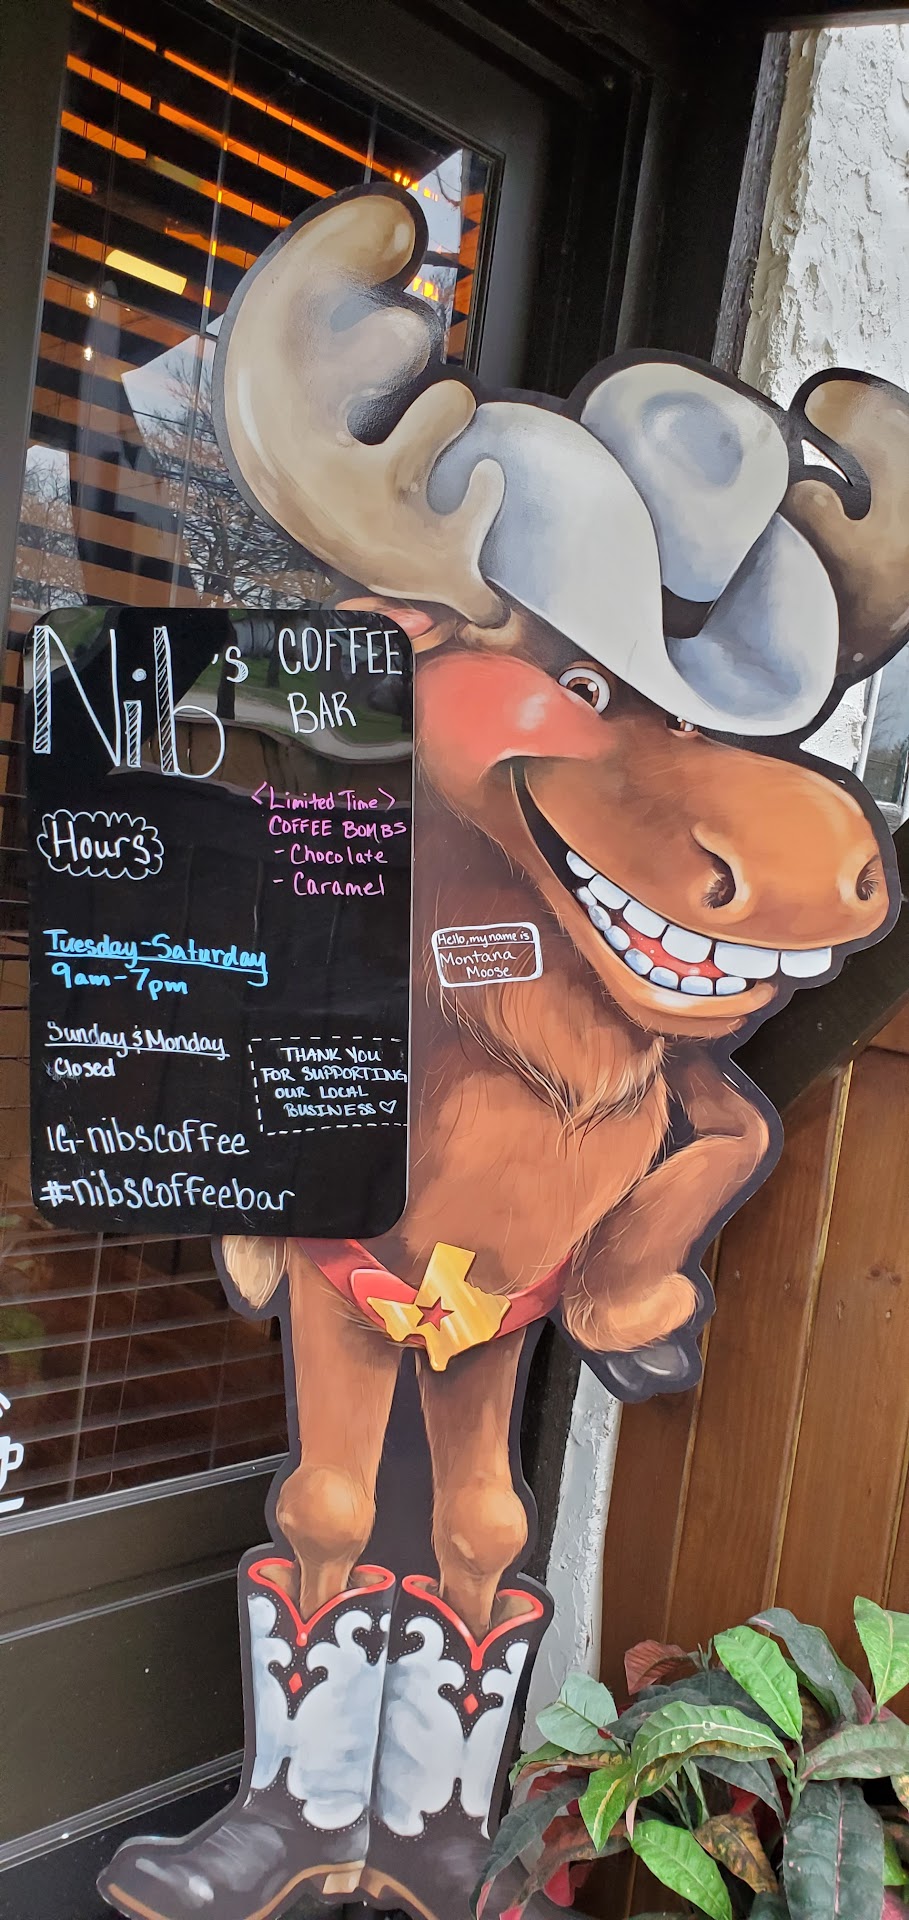 Nib's COFFEE
BAR
<Limited Time>
COFFEE BOMBS
- Chocolate
- Caramel
Hours
Tuesday-Saturday
9am-7pm
Sunday & Monday
Closed
THANK YOU
FOR SUPPORTING
OUR LOCAL
BUSINESS ♡
IG-nibscoffee
#nibscoffeebar
Hello, my name is
Montana
Moose